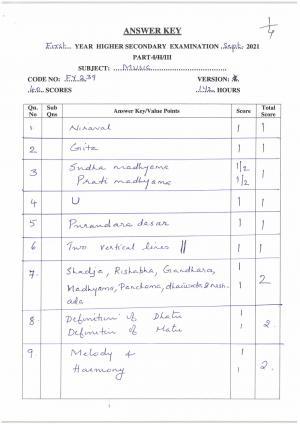 1/4
ANSWER KEY
First YEAR HIGHER SECONDARY EXAMINATION Sept. 2021
PART-I/II/III
SUBJECT: Music
CODE NO: FY 239 VERSION:
60 SCORES 1 1/2 HOURS
Qn. No Sub Qns Answer Key/Value Points Score Total Score
1 Niraval 1 1
2 Gita 1 1
3 Sudha madhyama 1/2
Prati madhyama 1/2 1
4 U 1 1
5 Purandara dasar 1 1
6 Two vertical lines || 1 1
7. Shadja, Rishabha, Gandhara, 1
Madhyama, Panchama, dhaivata & nish- 1 2
ada
8 Definition of Dhatu 1
Definition of Matu 1 2
9 Melody & 1
Harmony 1 2
1